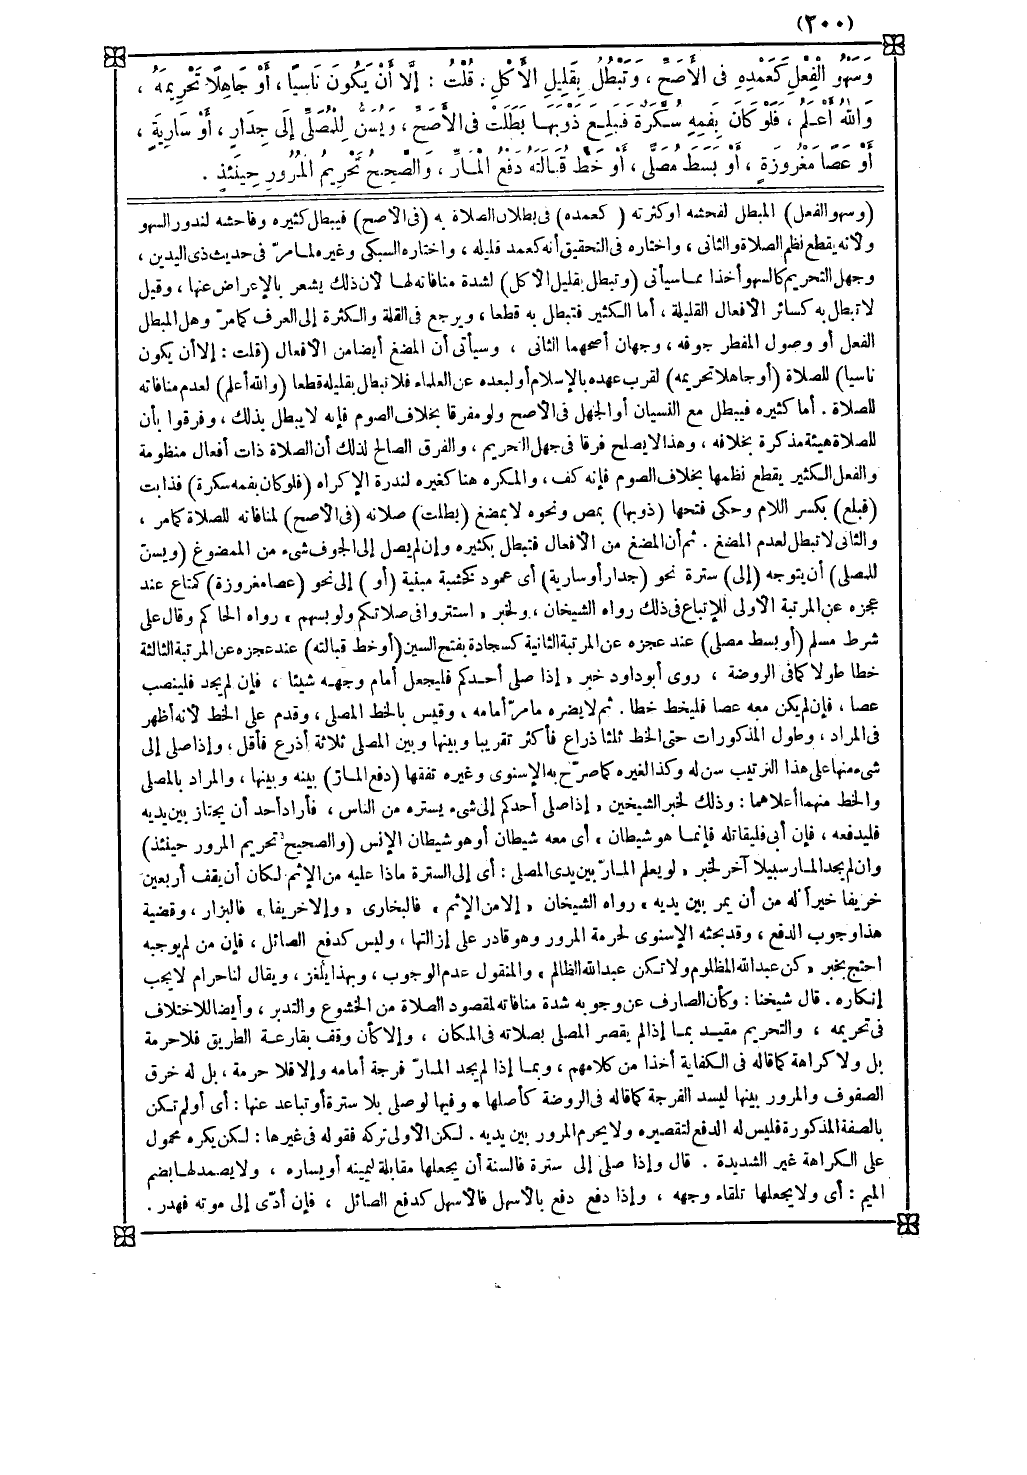 (٢٠٠)
وَسَهْوُ الْفِعْلِ كَعَمْدِهِ فِى الْأَصَحِّ ، وَتَبْطُلُ بِقَلِيلِ الْأَكْلِ . قُلْتُ : إلَّا أَنْ يَكُونَ نَاسِيًا ، أَوْ جَاهِلًا تَحْرِيمَهُ ،
وَاللهُ أَعْلَمُ ، فَلَوْ كَانَ بِفَمِهِ سُكَّرَةٌ فَبَلِعَ ذَوْبَهَا بَطَلَتْ فِى الْأَصَحِّ ، وَيُسَنُّ لِلْمُصَلِّى إلَى جِدَارٍ ، أَوْ سَارِيَةٍ ،
أَوْ عَصًا مَغْرُوزَةٍ ، أَوْ بَسَطَ مُصَلًّى ، أَوْ خَطَّ قُبَالَتَهُ دَفْعُ الْمَارِّ ، وَالصَّحِيحُ تَحْرِيمُ الْمُرُورِ حِينَئِذٍ .
(وسهو الفعل) المبطل لفحشه أو كثرته (كعمده) فى بطلان الصلاة به (فى الأصح) فيبطل كثيره وفاحشه لندور السهو
ولأنه يقطع نظم الصلاة والثانى ، واختاره فى التحقيق أنه كعمد قليله ، واختاره السبكى وغيره لما مرّ فى حديث ذى اليدين ،
وجهل التحريم كالسهو أخذا مما سيأتى (وتبطل بقليل الأكل) لشدة منافاته لها لأن ذلك يشعر بالإعراض عنها ، وقيل
لا تبطل به كسائر الأفعال القليلة ، أما الكثير فتبطل به قطعا ، ويرجع فى القلة والكثرة إلى العرف كما مرّ وهل المبطل
الفعل أو وصول المفطر جوفه ، وجهان أصحهما الثانى ، وسيأتى أن المضغ أيضا من الأفعال (قلت : إلا أن يكون
ناسيا) للصلاة (أو جاهلا تحريمه) لقرب عهده بالإسلام أو لبعده عن العلماء فلا تبطل بقليله قطعا (والله أعلم) لعدم منافاته
للصلاة . أما كثيره فيبطل مع النسيان أو الجهل فى الأصح ولو مفرقا بخلاف الصوم فإنه لا يبطل بذلك ، وفرقوا بأن
للصلاة هيئة مذكرة بخلافه ، وهذا لا يصلح فرقا فى جهل التحريم ، والفرق الصالح لذلك أن الصلاة ذات أفعال منظومة
والفعل الكثير يقطع نظمها بخلاف الصوم فإنه كف ، والمكره هنا كغيره لندرة الإكراه (فلو كان بفمه سكرة) فذابت
(فبلع) بكسر اللام وحكى فتحها (ذوبها) بمص ونحوه لا بمضغ (بطلت) صلاته (فى الأصح) لمنافاته للصلاة كما مر ،
والثانى لا تبطل لعدم المضغ . ثم أن المضغ من الأفعال فتبطل بكثيره وإن لم يصل إلى الجوف شىء من الممضوغ (ويسنّ
للمصلى) أن يتوجه (إلى) سترة نحو (جدار أو سارية) أى عمود كخشبة مبنية (أو) إلى نحو (عصا مغروزة) كمتاع عند
عجزه عن المرتبة الأولى للإتباع فى ذلك رواه الشيخان ، ولخبر « استتروا فى صلاتكم ولو بسهم » رواه الحاكم وقال على
شرط مسلم (أو بسط مصلى) عند عجزه عن المرتبة الثانية كسجادة بفتح السين (أو خط قبالته) عند عجزه عن المرتبة الثالثة
خطا طولا كما فى الروضة ، روى أبو داود خبر « إذا صلى أحدكم فليجعل أمام وجهه شيئا ، فإن لم يجد فلينصب
عصا ، فإن لم يكن معه عصا فليخط خطا . ثم لا يضره ما مرّ أمامه » وقيس بالخط المصلى ، وقدم على الخط لأنه أظهر
فى المراد ، وطول المذكورات حتى الخط ثلثا ذراع فأكثر تقريبا وبينها وبين المصلى ثلاثة أذرع فأقل ، وإذا صلى إلى
شىء منها على هذا الترتيب سن له وكذا لغيره كما صرّح به الإسنوى وغيره تفقها (دفع المارّ) بينه وبينها ، والمراد بالمصلى
والخط منهما أعلاهما : وذلك لخبر الشيخين « إذا صلى أحدكم إلى شىء يستره من الناس ، فأراد أحد أن يجتاز بين يديه
فليدفعه ، فإن أبى فليقاتله فإنما هو شيطان » أى معه شيطان أو هو شيطان الإنس (والصحيح تحريم المرور حينئذ)
وان لم يجد المار سبيلا آخر لخبر « لو يعلم المارّ بين يدى المصلى : أى إلى السترة ماذا عليه من الإثم لكان أن يقف أربعين
خريفا خيرا له من أن يمر بين يديه » رواه الشيخان « إلا من الإثم » فالبخارى « وإلا خريفا » فالبزار ، وقضية
هذا وجوب الدفع ، وقد بحثه الإسنوى لحرمة المرور وهو قادر على إزالتها ، وليس كدفع الصائل ، فإن من لم يوجبه
احتج بخبر « كن عبد الله المظلوم ولا تكن عبد الله الظالم » والمنقول عدم الوجوب ، وبهذا يلغز ، ويقال لنا حرام لا يجب
إنكاره . قال شيخنا : وكأن الصارف عن وجوبه شدة منافاته لمقصود الصلاة من الخشوع والتدبر ، وأيضا للاختلاف
فى تحريمه ، والتحريم مقيد بما إذا لم يقصر المصلى بصلاته فى المكان ، وإلا كأن وقف بقارعة الطريق فلا حرمة
بل ولا كراهة كما قاله فى الكفاية أخذا من كلامهم ، وبما إذا لم يجد المارّ فرجة أمامه وإلا فلا حرمة ، بل له خرق
الصفوف والمرور بينها ليسد الفرجة كما قاله فى الروضة كأصلها » وفيها لو صلى بلا سترة أو تباعد عنها : أى أو لم تكن
بالصفة المذكورة فليس له الدفع لتقصيره ولا يحرم المرور بين يديه . لكن الأولى تركه فقوله فى غيرها : لكن يكره محمول
على الكراهة غير الشديدة . قال وإذا صلى إلى سترة فالسنة أن يجعلها مقابلة ليمينه أو يساره ، ولا يصمد لها بضم
الميم : أى ولا يجعلها تلقاء وجهه ، وإذا دفع دفع بالأسهل فالأسهل كدفع الصائل ، فإن أدّى إلى موته فهدر .